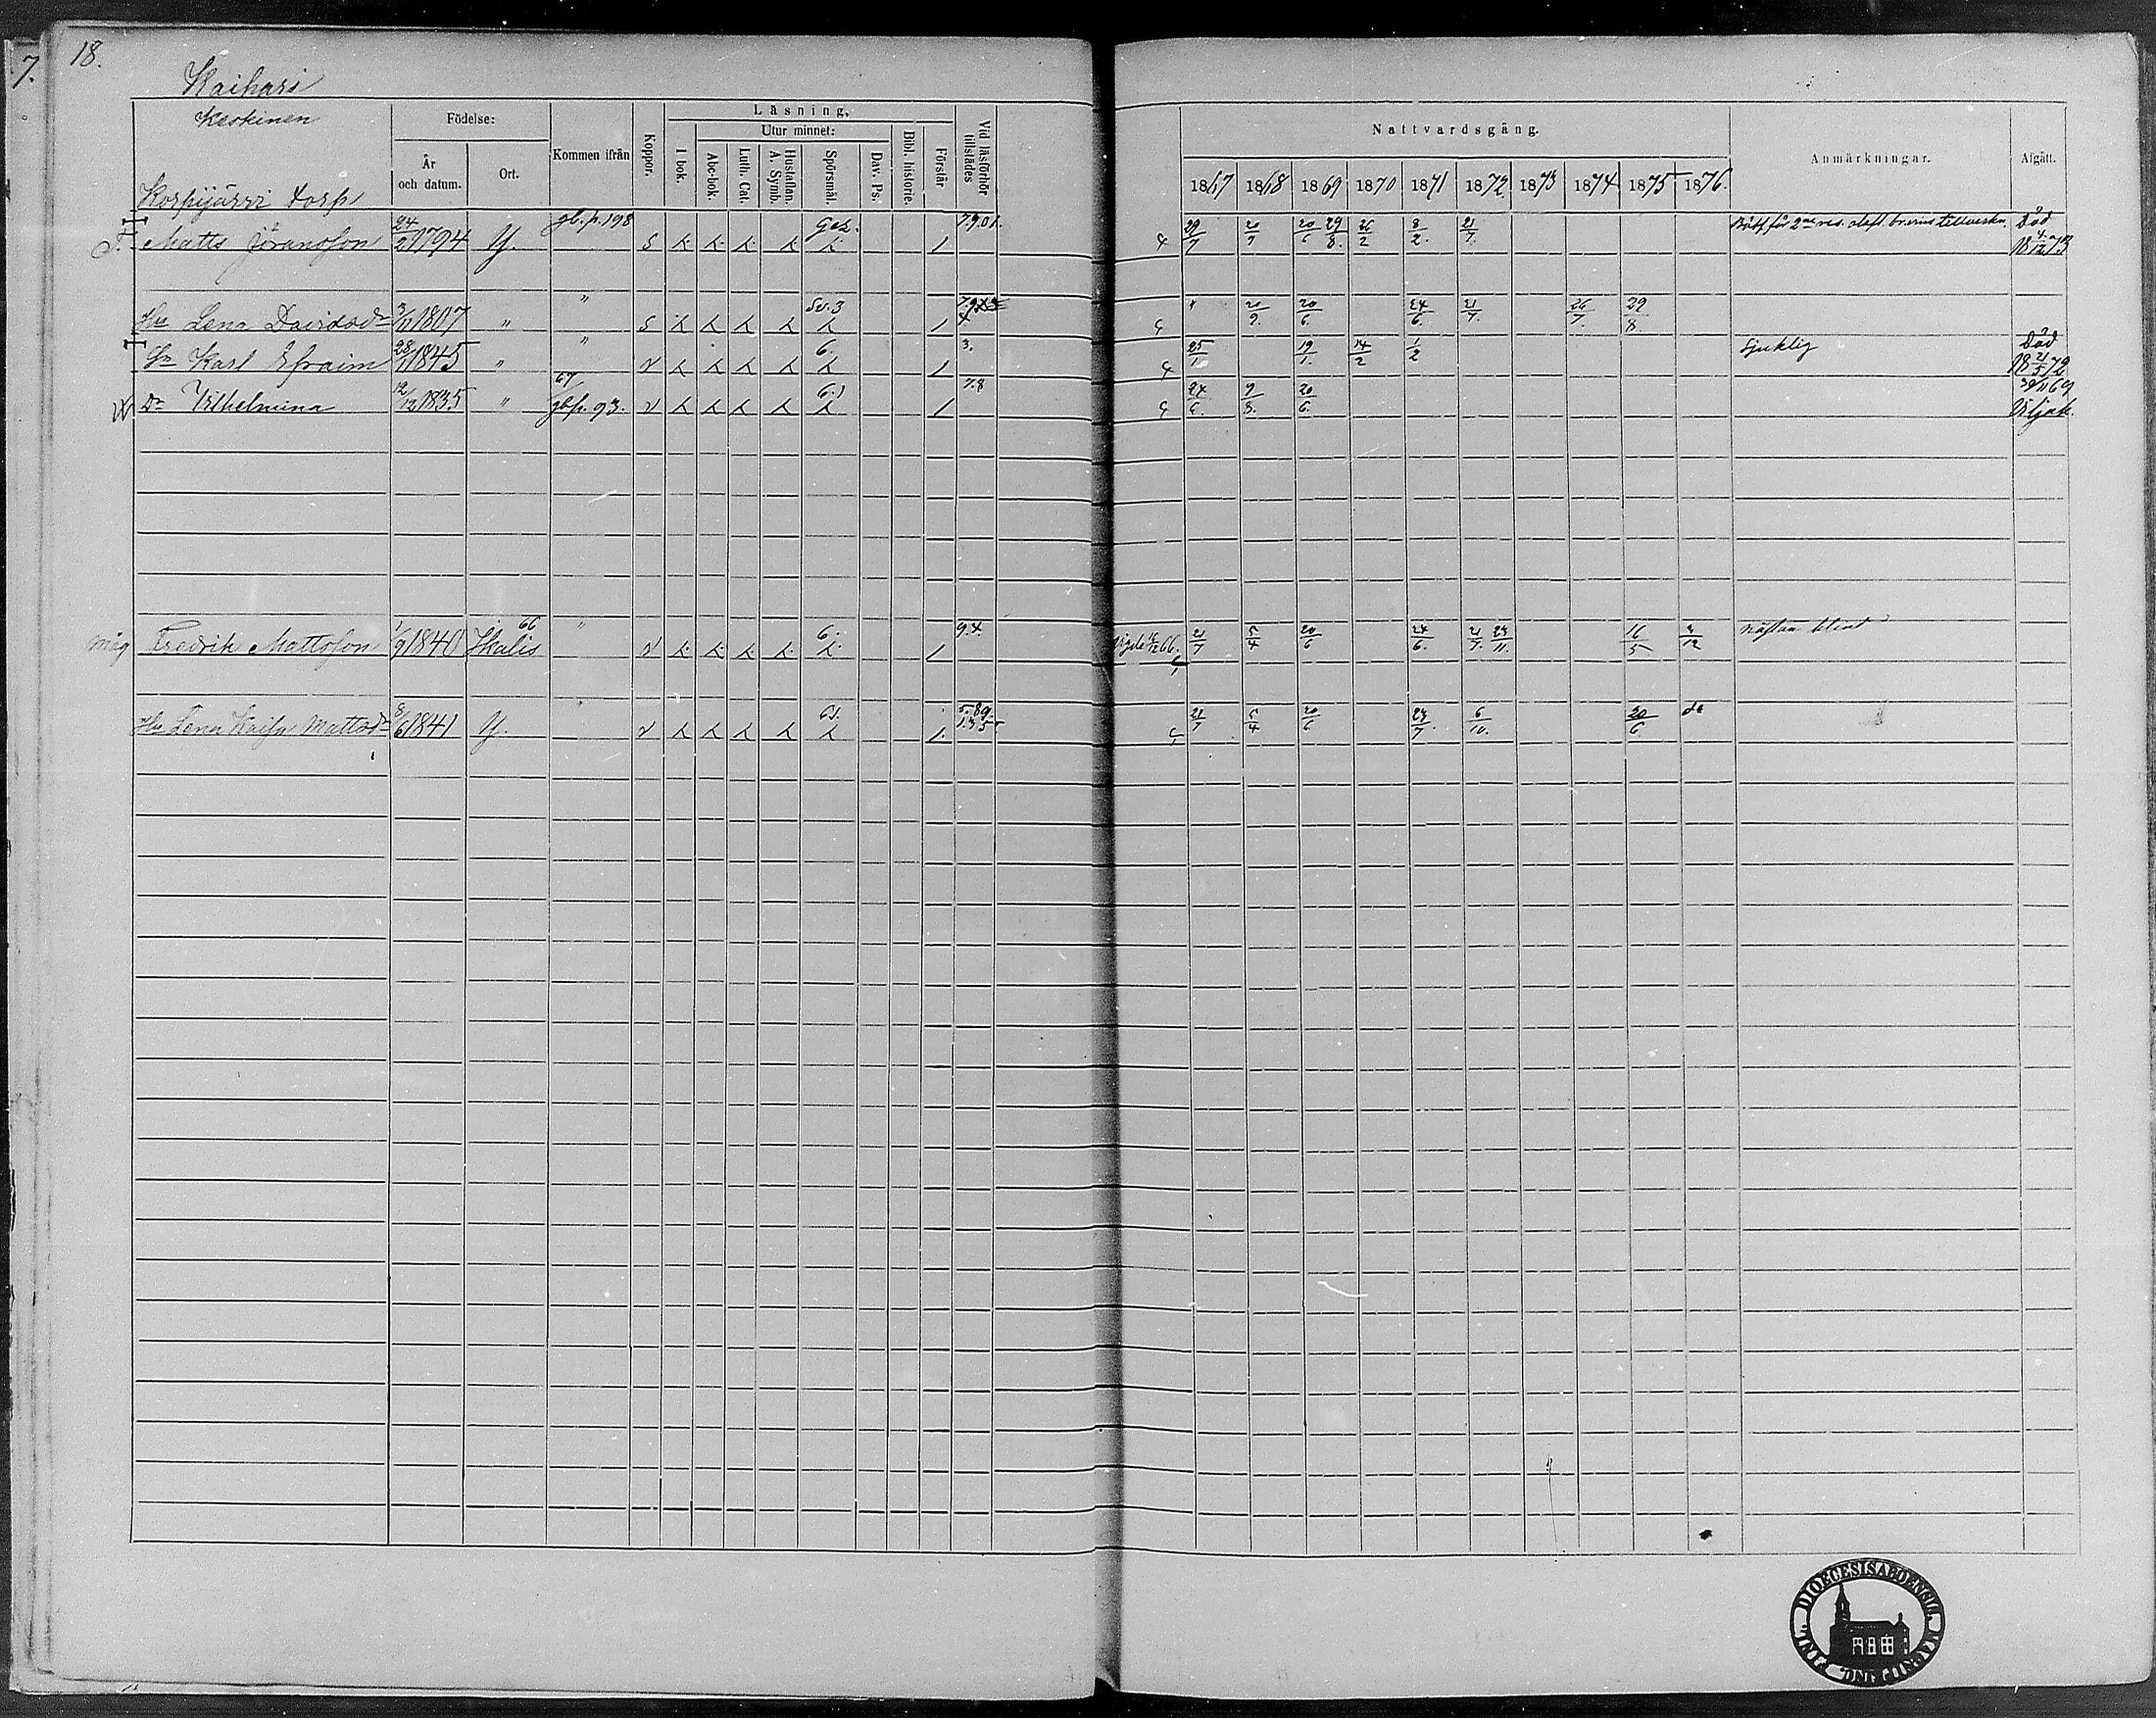 7.
18.
Kaihari
Keskinen
Korpijärvi torp
Födelse:
År och datum.
Ort.
Kommen ifrån
Koppor.
Läsning.
I bok.
Utur minnet:
Abc-bok.
Luth. Cat.
Hustaflan. A. Symb.
Spörsmål.
Dav. Ps.
Bibl. historie.
Förstår
Vid läsförhör tillstädes
Nattvardsgång.
1867 1868 1869 1870 1871 1872 1873 1874 1875 1876.
Anmärkningar.
Afgått.
T. Matts Göransson 24/2 1794 Y. gb.p.198 s 1 7.9.01. 29/7 20/9 20/6 29/8. 26/2 8/2. 21/7. Död 18 4/12 73
Hu Lena Davidsdr 3/12 1807 " " s Sv.3 1 " 20/9. 20/6. 24/6. 21/7. 26/7. 29/8.
Sn Karl Efraim 28/1 1845 " " v 6. 1 3. 25/1 19/1. 14/2 1/2 Sjuklig Död 18 21/5 72
Dr Vilhelmina 12/12 1835 " 67 gbp. 93. v 6.1 1 7.8 24/6. 9/8. 20/6. 69 Viljak.
Måg Fredrik Mattsson 1/9 1840 Ikalis 66 " v 6. 1 9.4 vigde 66. 21/7 5/4 20/6 24/6. 21/7. 24/11. 16/5 3/12 nästan blind
Hu Lena Kajsa Mattsdr 8/6 1841 Y. " v 6.1. 1. 5.89 1.3.5 21/7 5/4 20/6 23/7. 6/10. 20/6. do
DIOECESIS ABOENSIS